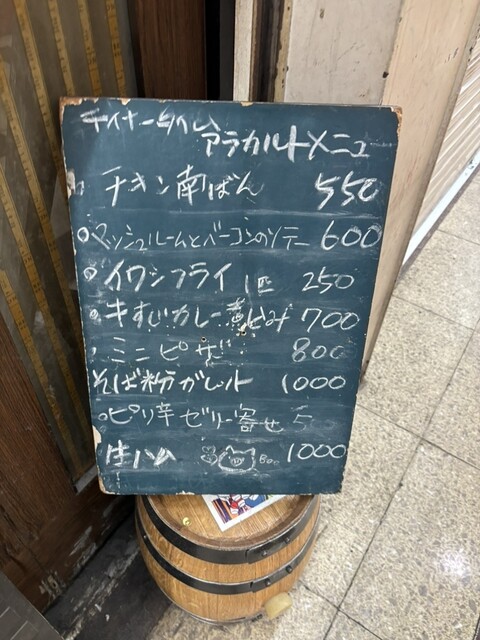 ディナータイム
アラカルトメニュー
チキン南ばん 550
マッシュルームとベーコンのソテー 600
イワシフライ 1匹 250
牛すじカレー煮込み 700
ミニピザ 800
そば粉ガレット 1000
ピリ辛ゼリー寄せ 5
生ハム Boo 1000